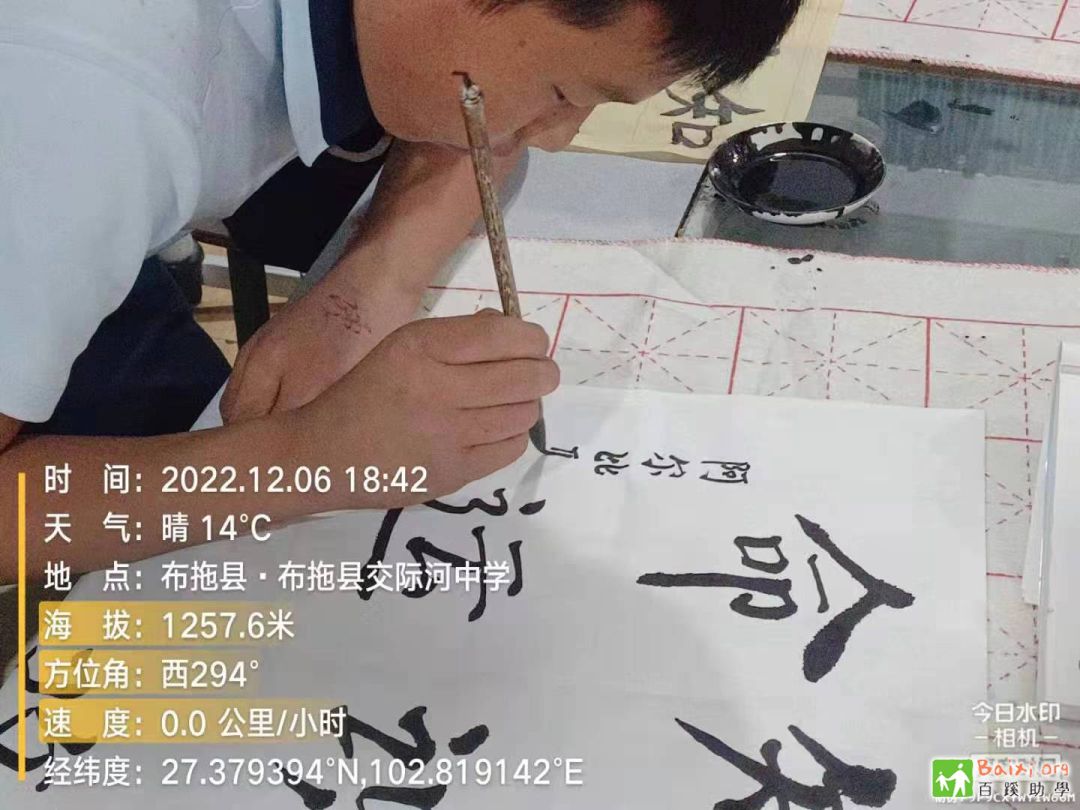 知
阿尔比
命
运
时 间: 2022.12.06 18:42
天 气: 晴 14°C
地 点: 布拖县·布拖县交际河中学
海 拔: 1257.6米
方位角: 西294°
速 度: 0.0 公里/小时
经纬度: 27.379394°N,102.819142°E
今日水印
相机
Baixi.org
百蹊助學